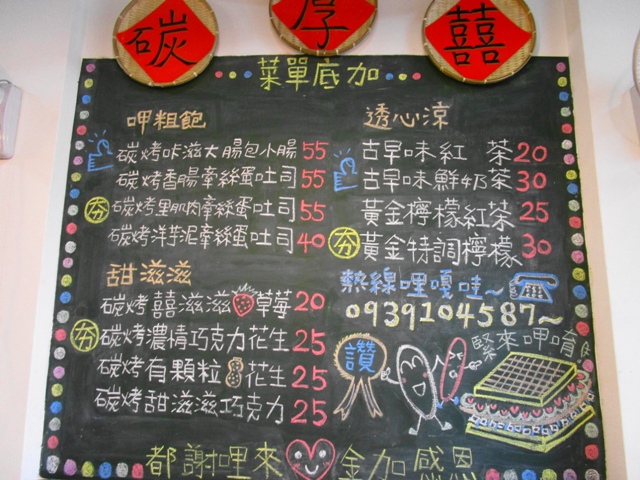 碳 厚 囍
菜單底加
呷粗飽
碳烤咔滋大腸包小腸 55
碳烤香腸牽絲蛋吐司 55
夯 碳烤里肌肉牽絲蛋吐司 55
碳烤洋芋泥牽絲蛋吐司 40
甜滋滋
碳烤囍滋滋草莓 20
夯 碳烤濃情巧克力花生 25
碳烤有顆粒花生 25
碳烤甜滋滋巧克力 25
透心涼
古早味紅 茶 20
古早味鮮奶茶 30
黃金檸檬紅茶 25
夯 黃金特調檸檬 30
熱線哩嘎哇~
0939104587~
讚
緊來呷唷
都謝哩來 金加感恩